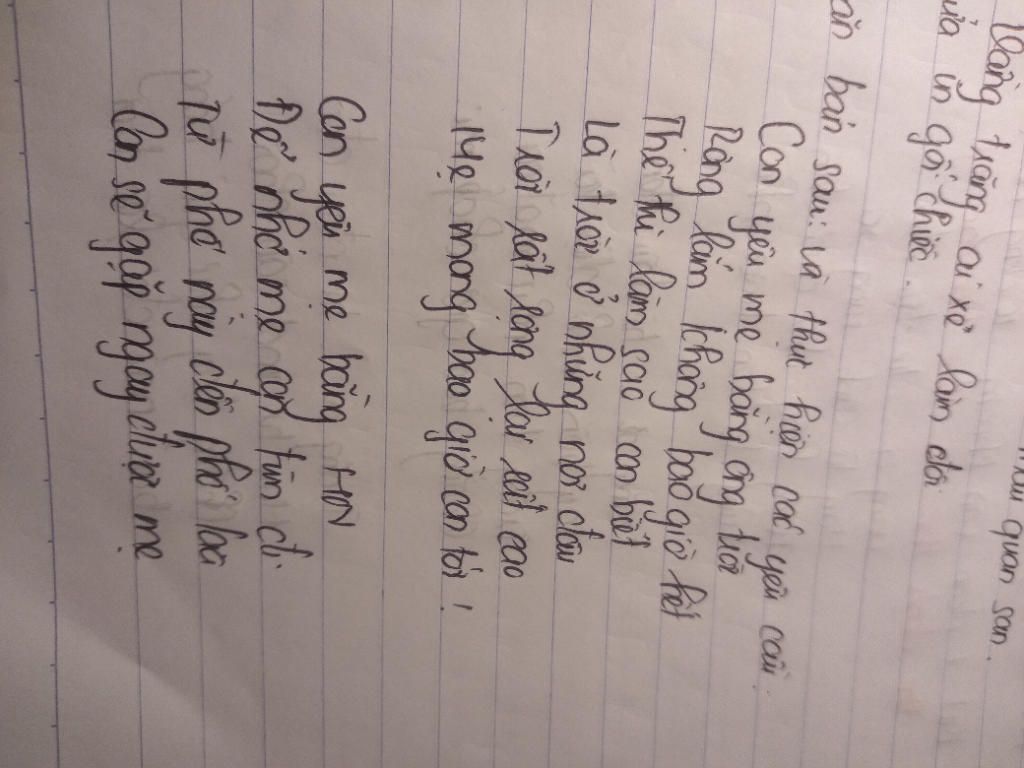 quan san.
Vầng trăng ai xẻ làm đôi
Nửa in gối chiếc
văn bản sau: và thực hiện các yêu cầu.
Con yêu mẹ bằng ông trời
Rộng lắm không bao giờ hết
Thế thì làm sao con biết
Là trời ở những nơi đâu
Trời rất rộng lại rất cao
Mẹ mong bao giờ con tới!
Con yêu mẹ bằng HN
Để nhớ mẹ con tìm đi
Từ phố này đến phố kia
Con sẽ gặp ngay được mẹ